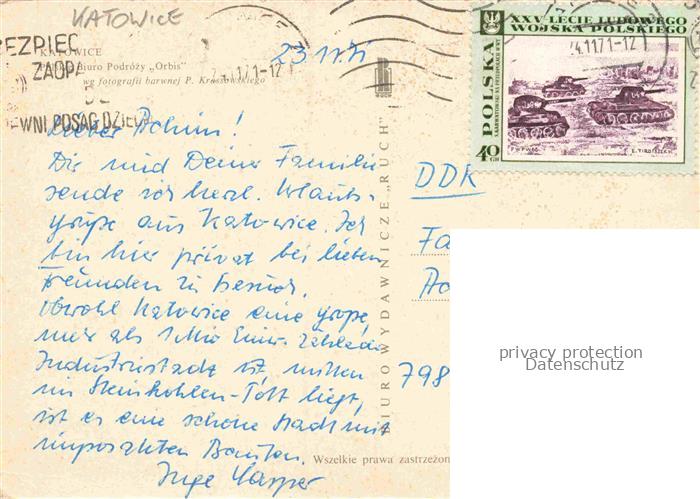 KATOWICE
KATOWICE
Biuro Podróży „Orbis"
wg fotografii barwnej P. Kruszewskiego
EZPIEC
ZAOP
EWNI POSAG DZIEC
23.11.71
2 .1171-12
XXV-LECIE LUDOWEGO
WOJSKA POLSKIEGO
4.1171-12
POLSKA
40 GR
PWPW 68
Lieber Achim!
Dir und Deiner Familie
sende ich herzl. Urlaubs-
grüße aus Katowice. Ich
bin hier privat bei lieben
Freunden zu Besuch.
Obwohl Katowice eine große,
mehr als 1 Mio Einw. zählende
Industriestadt ist, mitten
im Steinkohlen-Pott liegt,
ist es eine schöne Stadt mit
imposanten Bauten.
Inge
BIURO WYDAWNICZE „RUCH"
RUCH
DDR
Fa
798
Wszelkie prawa zastrzeżon
privacy protection
Datenschutz